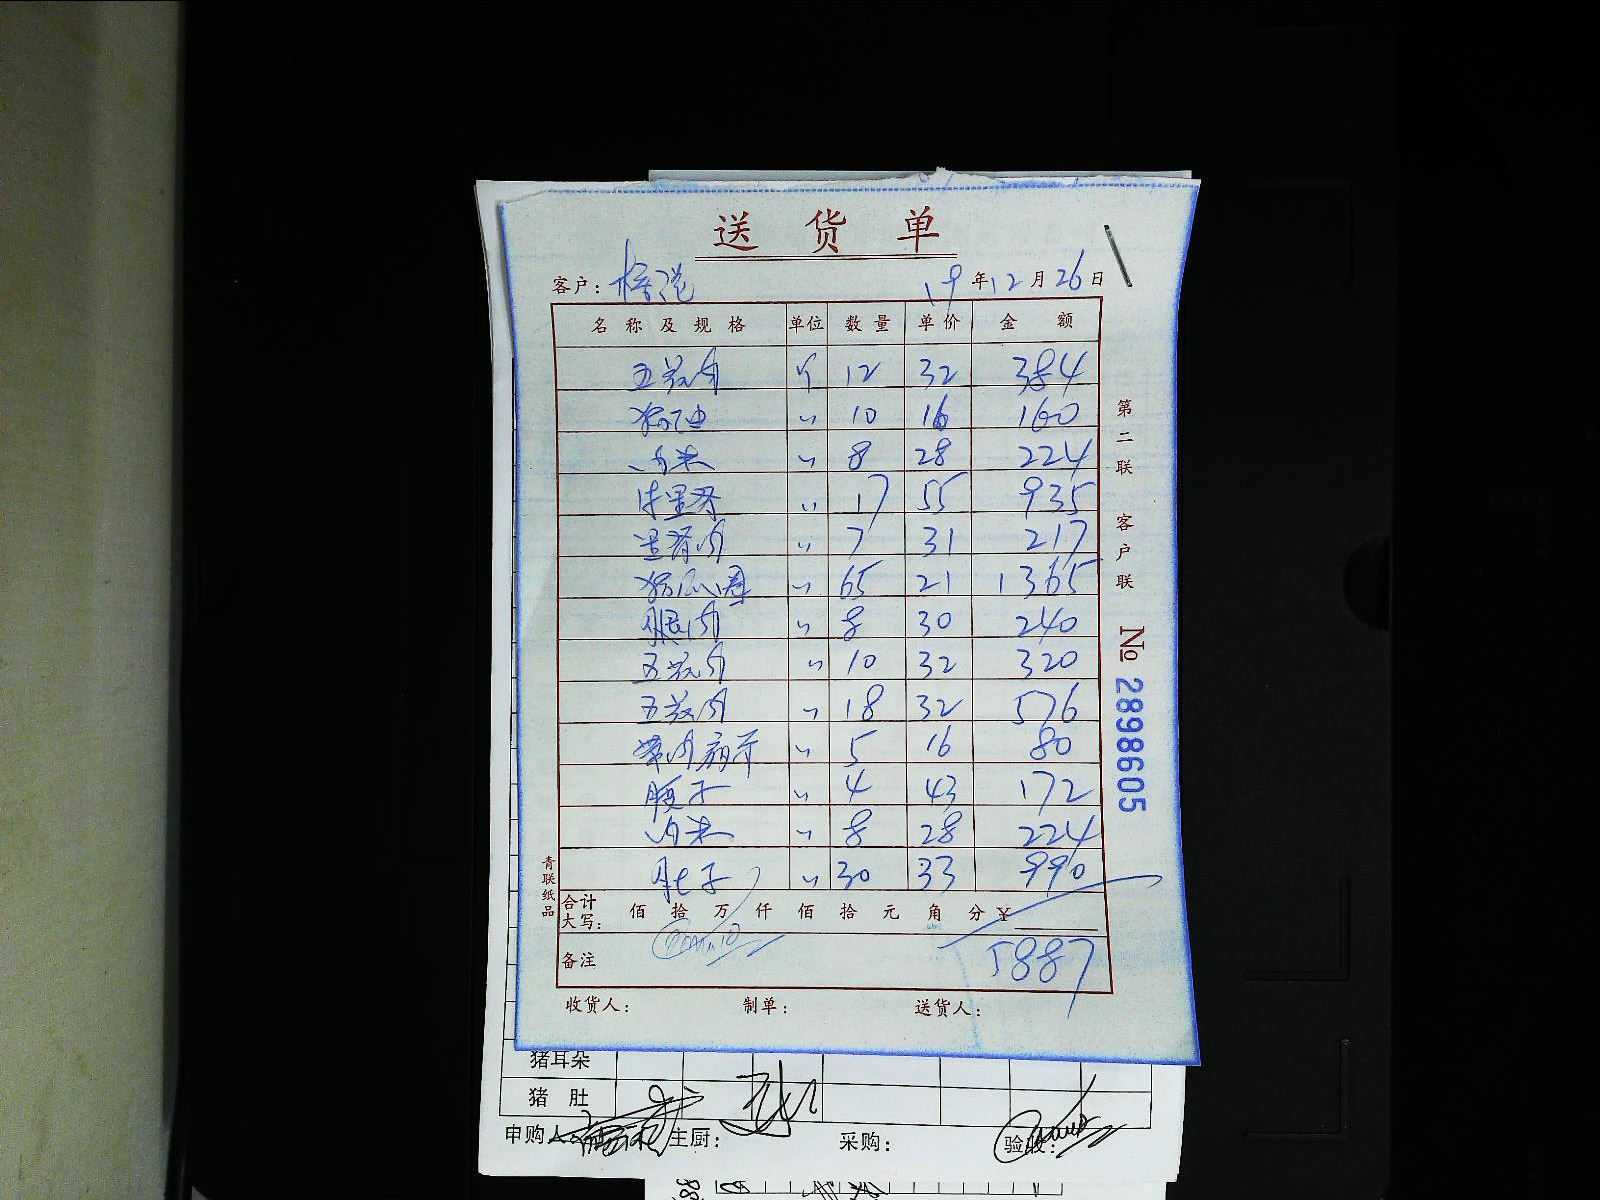 送货单
客户: 19年12月26日
名称及规格 单位 数量 单价 金额
五花肉 个 12 32 384
猪油 〃 10 16 160
肉末 〃 8 28 224
牛里脊 〃 17 55 935
里脊肉 〃 7 31 217
〃 65 21 1365
腿肉 〃 8 30 240
五花肉 〃 10 32 320
五花肉 〃 18 32 576
带肉扇骨 〃 5 16 80
腰子 〃 4 43 172
肉末 〃 8 28 224
肚子 〃 30 33 990
合计大写: 佰 拾 万 仟 佰 拾 元 角 分 ¥
备注 5887
收货人: 制单: 送货人:
青联纸品
第二联 客户联
No 2898605
猪耳朵
猪肚
申购人: 主厨: 采购: 验收: